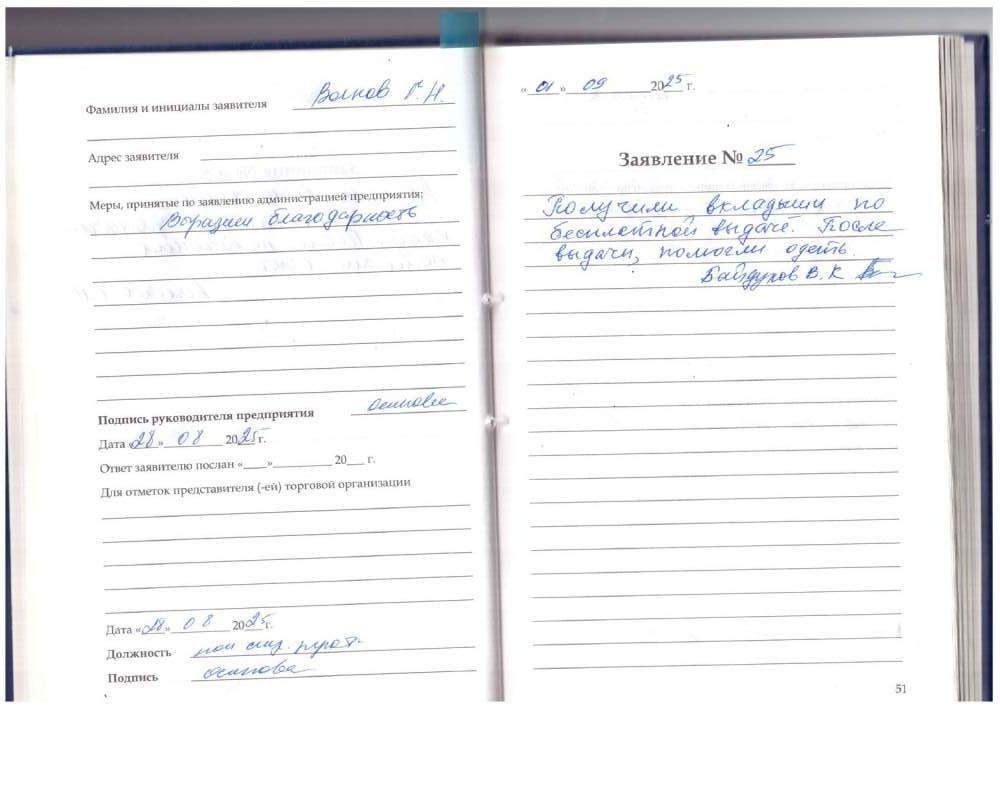 Фамилия и инициалы заявителя Волков Г.Н.
Адрес заявителя
Меры, принятые по заявлению администрацией предприятия:
благодарность
Подпись руководителя предприятия
Дата «28» 08 2025 г.
Ответ заявителю послан «____»__________ 20___ г.
Для отметок представителя (-ей) торговой организации
Дата «28» 08 2025 г.
Должность
Подпись Осипова
«01» 09 2025 г.
Заявление № 25
Получили вкладыши по
бесплатной выдаче. После
выдачи, помогли одеть.
Байдуков В.К.
51